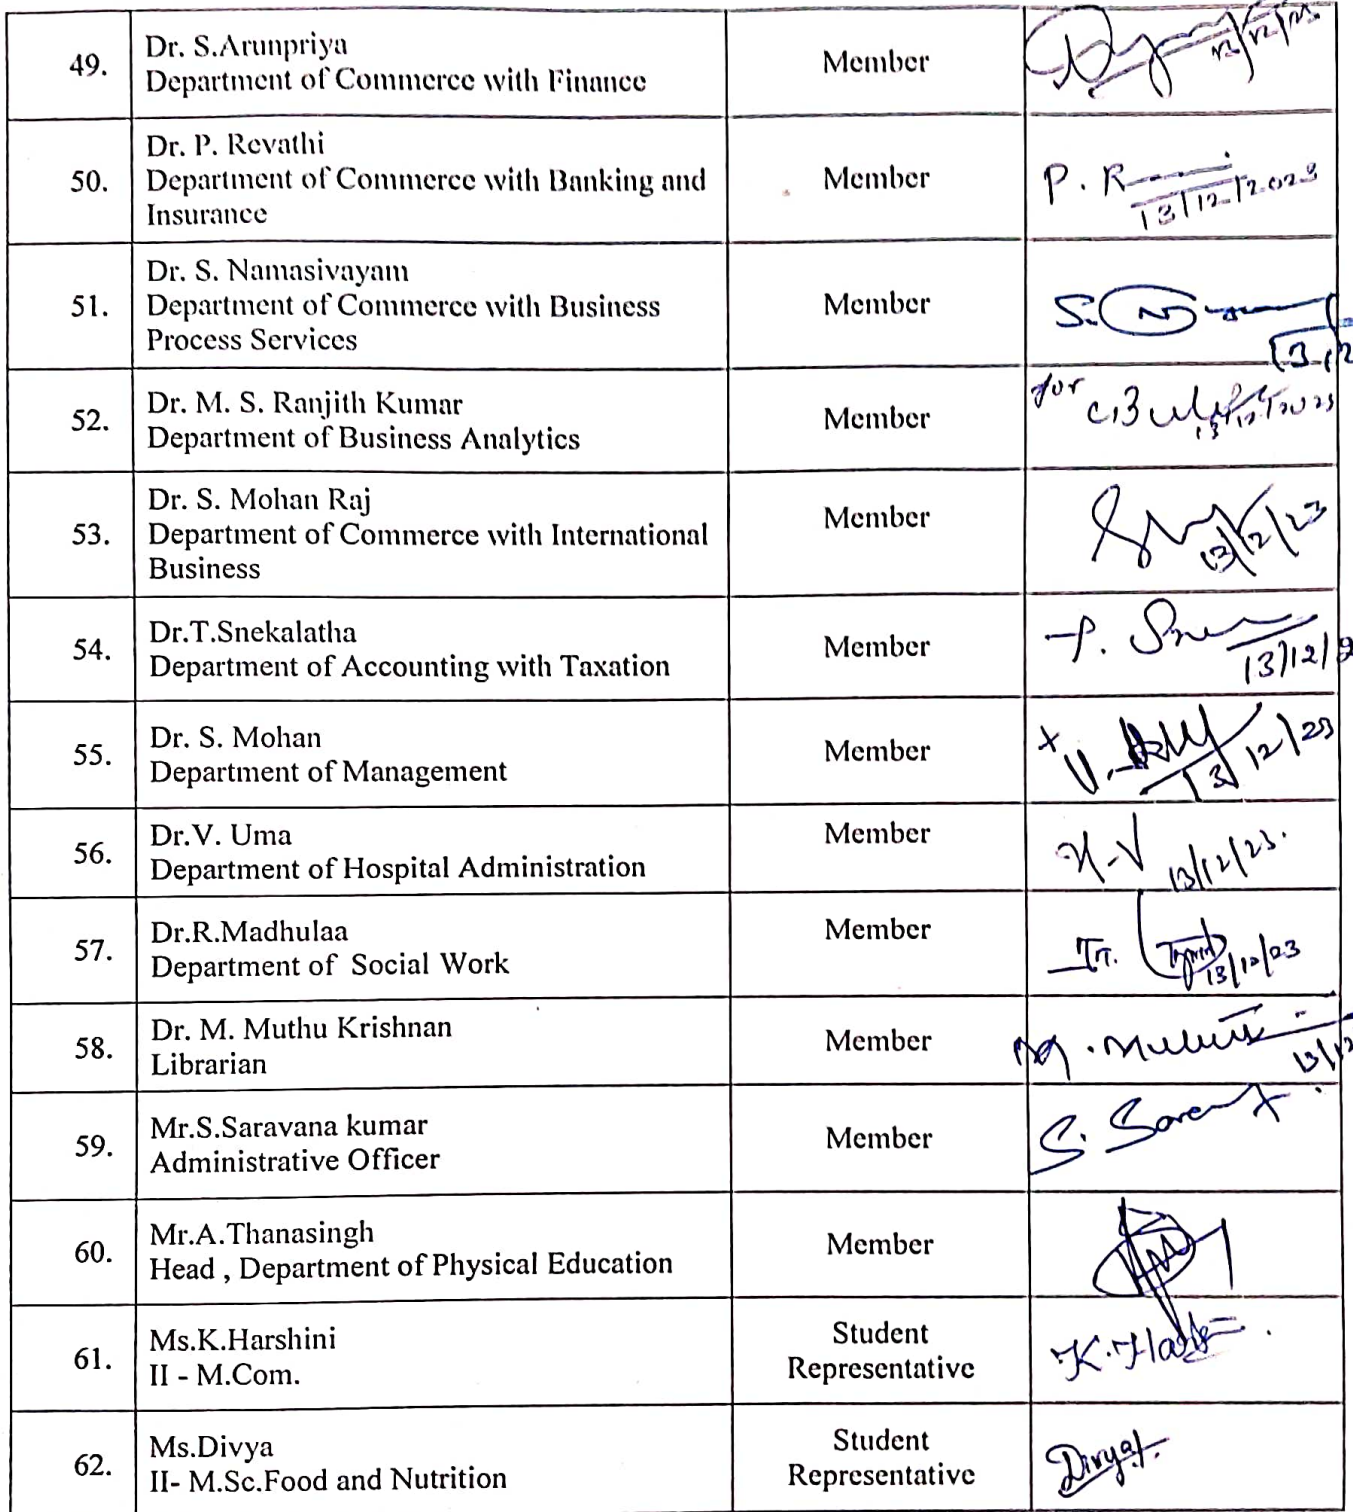 49.
Dr. S.Arunpriya
Department of Commerce with Finance
Member
12/12/23
50.
Dr. P. Revathi
Department of Commerce with Banking and
Insurance
Member
P. R
13/12/2023
51.
Dr. S. Namasivayam
Department of Commerce with Business
Process Services
Member
S.
52.
Dr. M. S. Ranjith Kumar
Department of Business Analytics
Member
for
13/12/2023
53.
Dr. S. Mohan Raj
Department of Commerce with International
Business
Member
13/12/23
54.
Dr.T.Snekalatha
Department of Accounting with Taxation
Member
13/12/2
55.
Dr. S. Mohan
Department of Management
Member
13/12/23
56.
Dr.V. Uma
Department of Hospital Administration
Member
13/12/23.
57.
Dr.R.Madhulaa
Department of Social Work
Member
13/12/23
58.
Dr. M. Muthu Krishnan
Librarian
Member
M.
59.
Mr.S.Saravana kumar
Administrative Officer
Member
S.
60.
Mr.A.Thanasingh
Head , Department of Physical Education
Member
61.
Ms.K.Harshini
II - M.Com.
Student
Representative
K.
62.
Ms.Divya
II- M.Sc.Food and Nutrition
Student
Representative
Divya